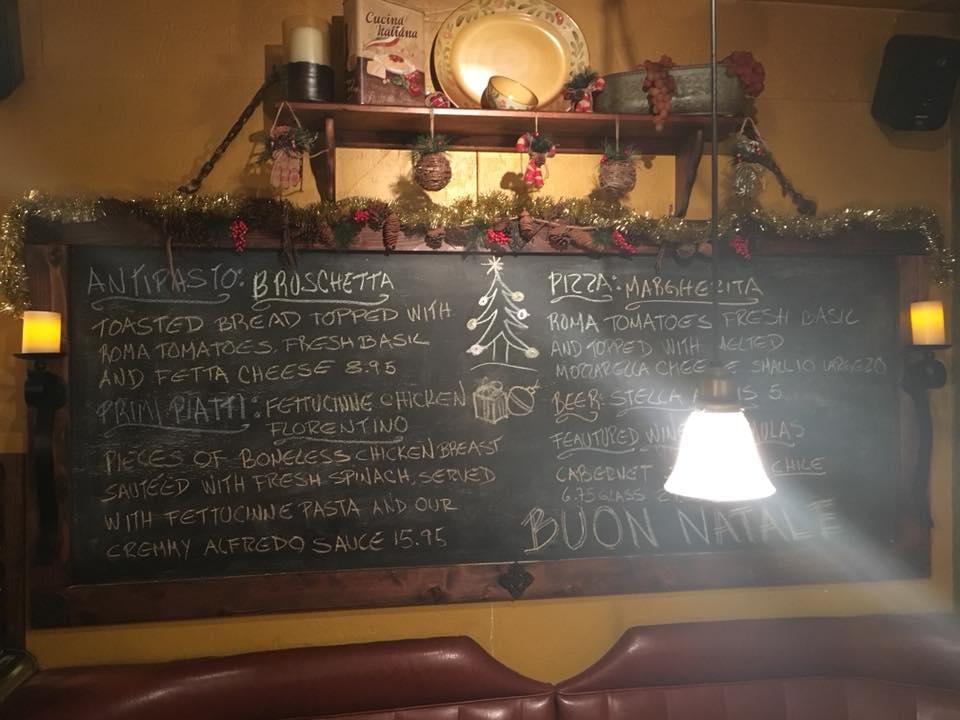 Cucina
Italiana
ANTIPASTO: BRUSCHETTA
TOASTED BREAD TOPPED WITH
ROMA TOMATOES, FRESH BASIL
AND FETTA CHEESE 8.95
PRIMI PIATTI: FETTUCINNE CHICKEN
FLORENTINO
PIECES OF BONELESS CHICKEN BREAST
SAUTEED WITH FRESH SPINACH, SERVED
WITH FETTUCINNE PASTA AND OUR
CREMMY ALFREDO SAUCE 15.95
PIZZA: MARGHERITA
ROMA TOMATOES FRESH BASIL
AND TOPPED WITH MELTED
MOZZARELLA CHEESE SMALL 10 LARGE 20
BEER: STELLA 5
FEAUTURED WINE
CABERNET CHILE
6.75 GLASS
BUON NATALE